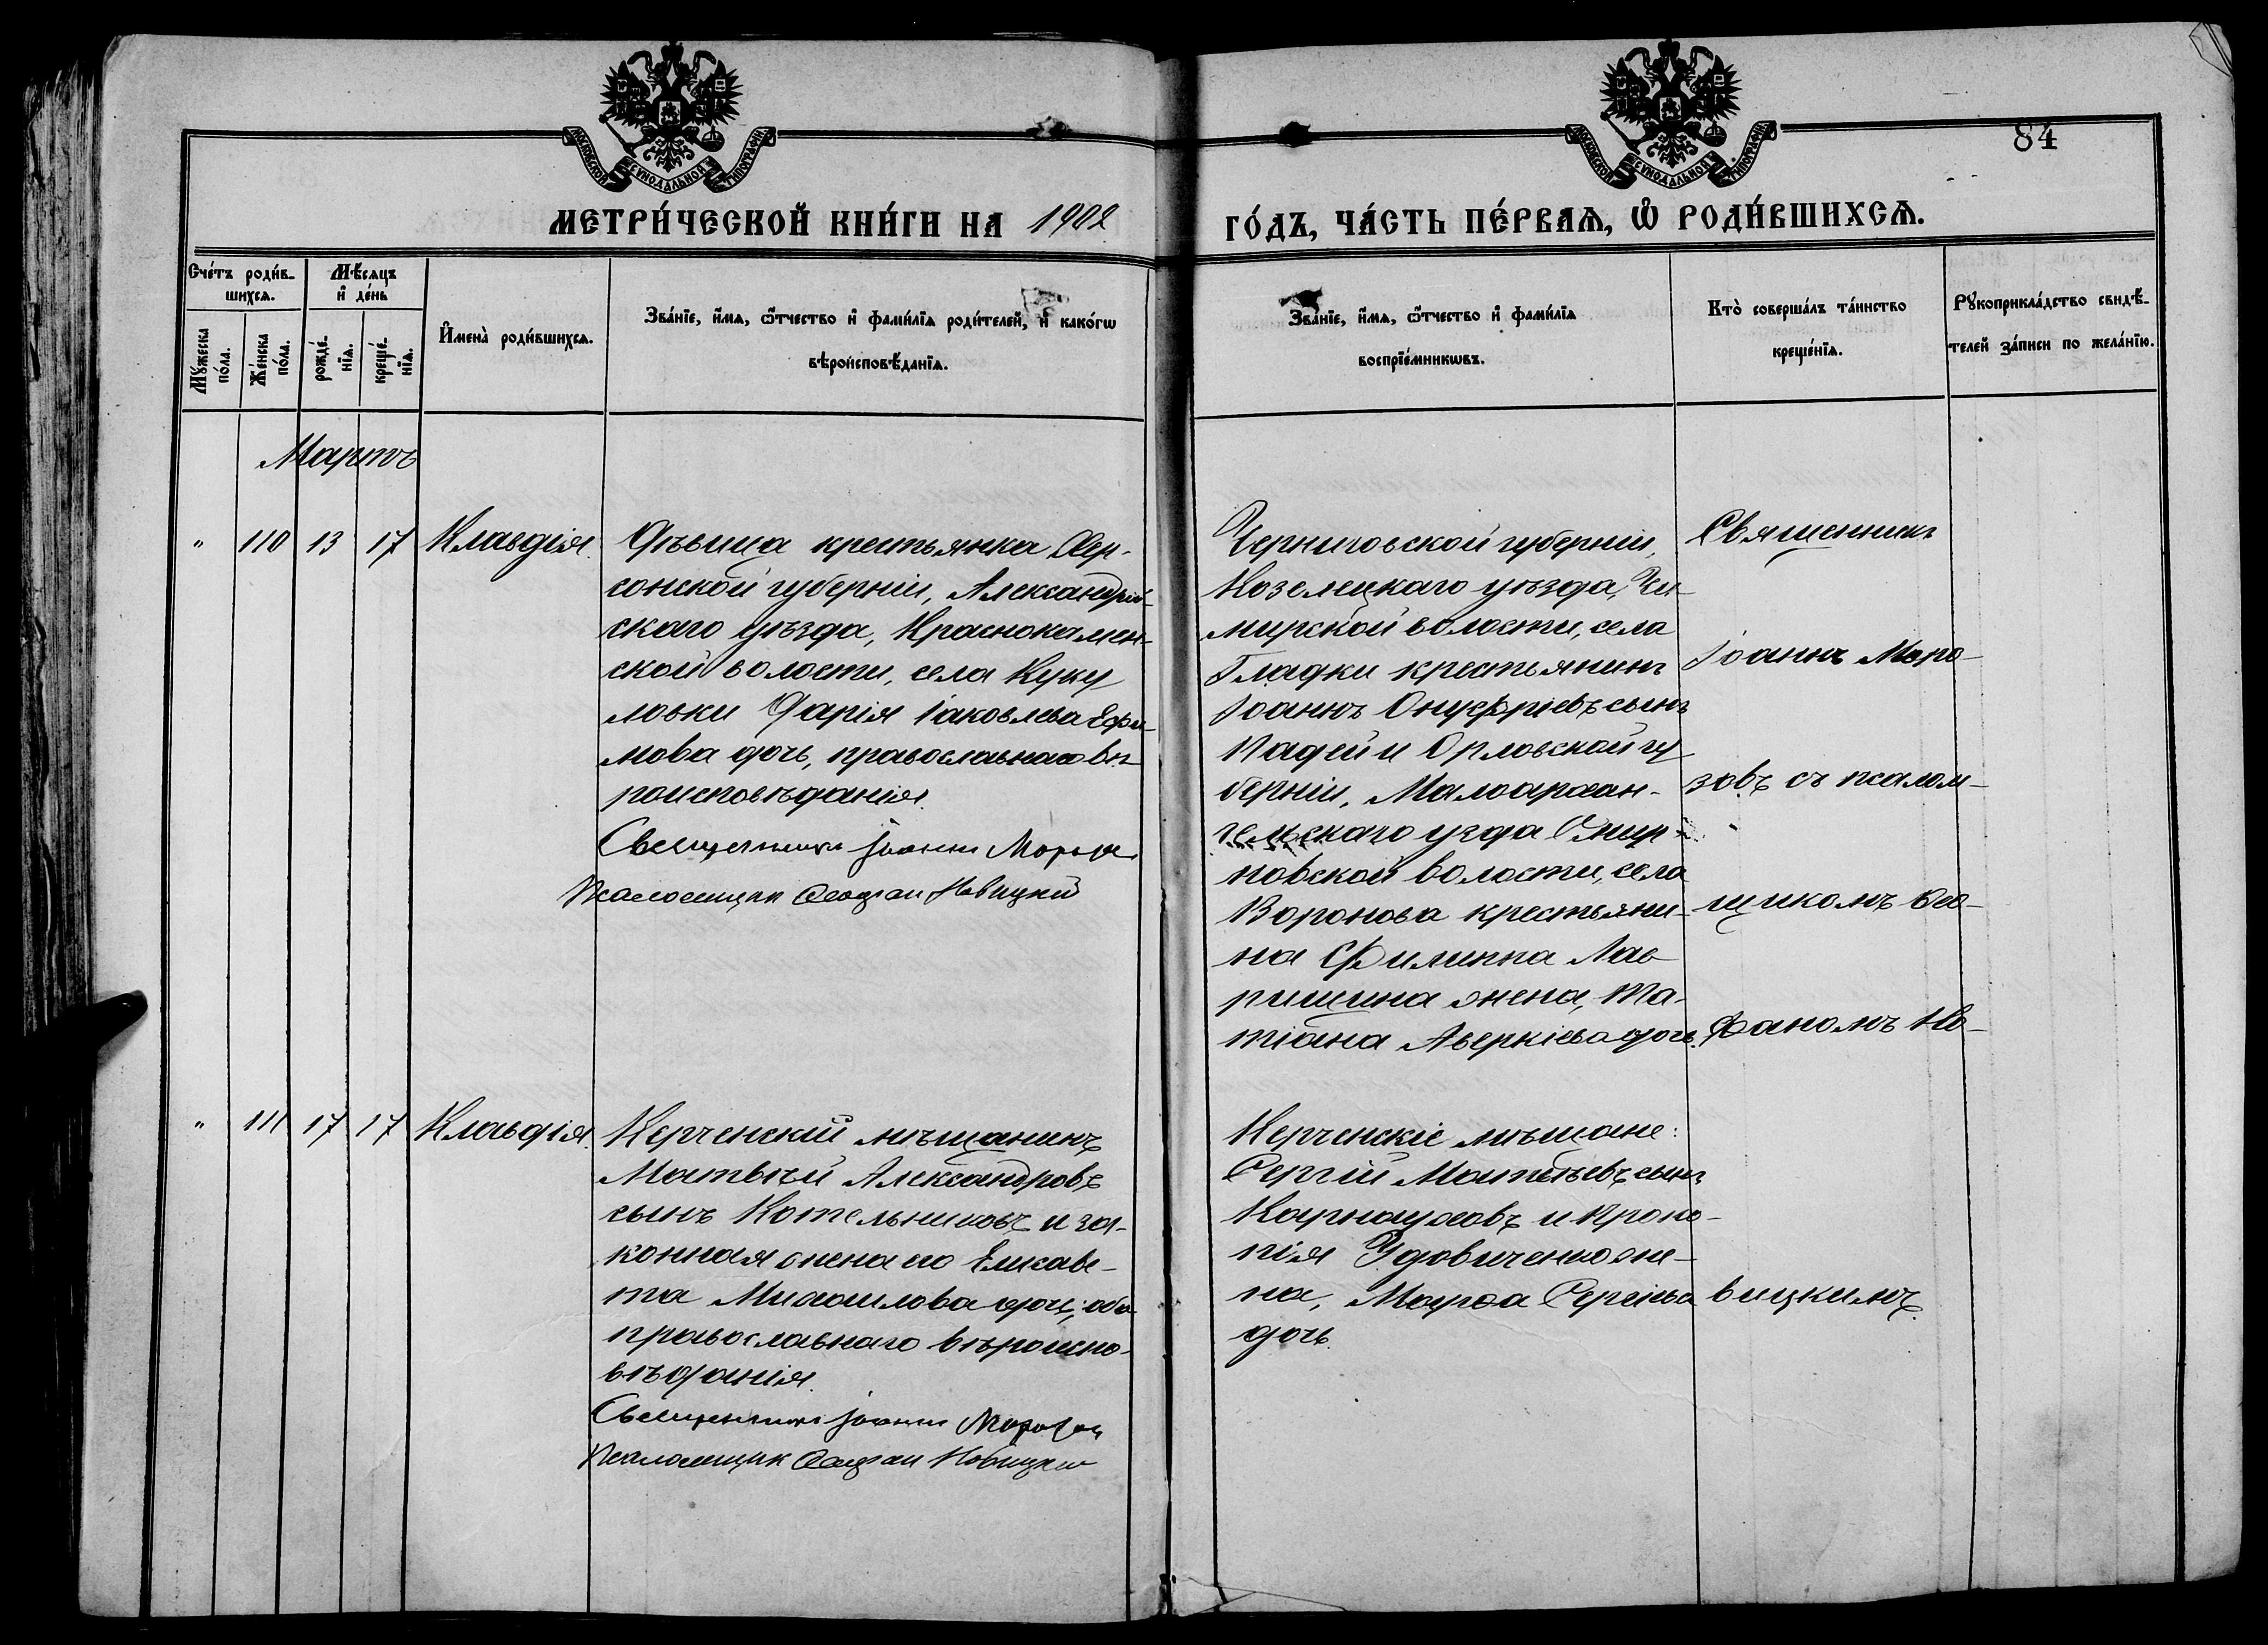 МОСКОВСКОЙ СѴНОДАЛЬНОЙ ТИПОГРАФІИ
МОСКОВСКОЙ СѴНОДАЛЬНОЙ ТИПОГРАФІИ
84
МЕТРИ́ЧЕСКОЙ КНИ́ГИ НА 1902 ГО́ДЪ, ЧА́СТЬ ПЕ́РВАѦ, Ѡ҆ РОДИ́ВШИХСѦ.
Сче́тъ роди́в-
шихсѧ.
Мꙋ́жеска по́ла.
Же́нска по́ла.
Мѣ́сѧцъ
и҆ де́нь
рожде́-
нїѧ.
креще́-
нїѧ.
И҆мена̀ роди́вшихсѧ.
Зва́нїе, и҆́мѧ, ѻ҆́тчество и҆ фами́лїѧ роди́телей, и҆ како́гѡ
вѣроисповѣ́данїѧ.
Зва́нїе, и҆́мѧ, ѻ҆́тчество и҆ фами́лїѧ
воспрїе́мникѡвъ.
Кто̀ соверша́лъ та́инство
креще́нїѧ.
Рꙋкоприкла́дство свидѣ́-
телей за́писи по жела́нїю.
Мартъ
" 110 13 17 Клавдія.
Дѣвица крестьянка Хер-
сонской губерніи, Александрій-
скаго уѣзда, Краснокамен-
ской волости, села Куку-
ловки Дарія Іаковлева Ефи-
мова дочь, православнаго вѣ-
роисповѣданія.
Священникъ Іоаннъ Морозов
Псаломщик Феофан Новицкий
Черниговской губерніи,
Козелецкаго уѣзда, Че-
мерской волости, села
Гладки крестьянинъ
Іоаннъ Онуфріевъ сынъ
Падей и Орловской гу-
берніи, Малоархан-
гельскаго уѣзда
новской волости, села
Воронова крестьяни-
на Филиппа Лав-
ришина жена, Та-
тіана Аверкіева дочь.
Священникъ
Іоаннъ Моро-
зовъ съ псалом-
щикомъ Ѳео-
фаномъ Но-
вицкимъ.
" 111 17 17 Клавдія.
Керченскій мѣщанинъ
Матвѣй Александровъ
сынъ Котельниковъ и за-
конная жена его Елисаве-
та Михаилова дочь, оба
православнаго вѣроиспо-
вѣданія.
Священникъ Іоаннъ Морозов
Псаломщик Феофан Новицкий
Керченскіе мѣщане:
Сергій Матвѣевъ сынъ
Карнауховъ и Проко-
пія Удовиченко же-
на, Марѳа Сергіева
дочь.